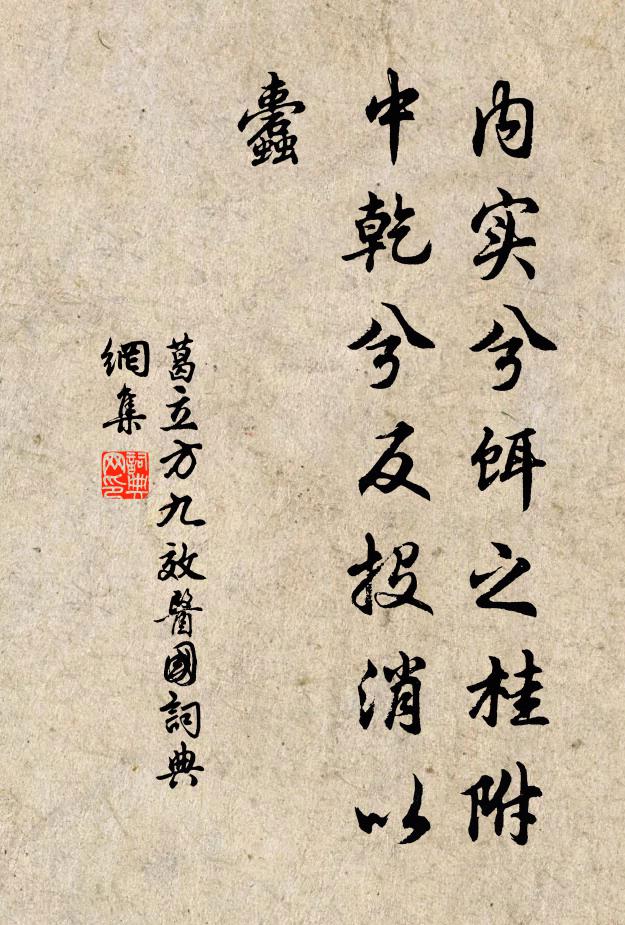 内实兮饵之桂附
中乾兮反投消以
蠹
葛立方九效醫國詞典
網集
詞典網印